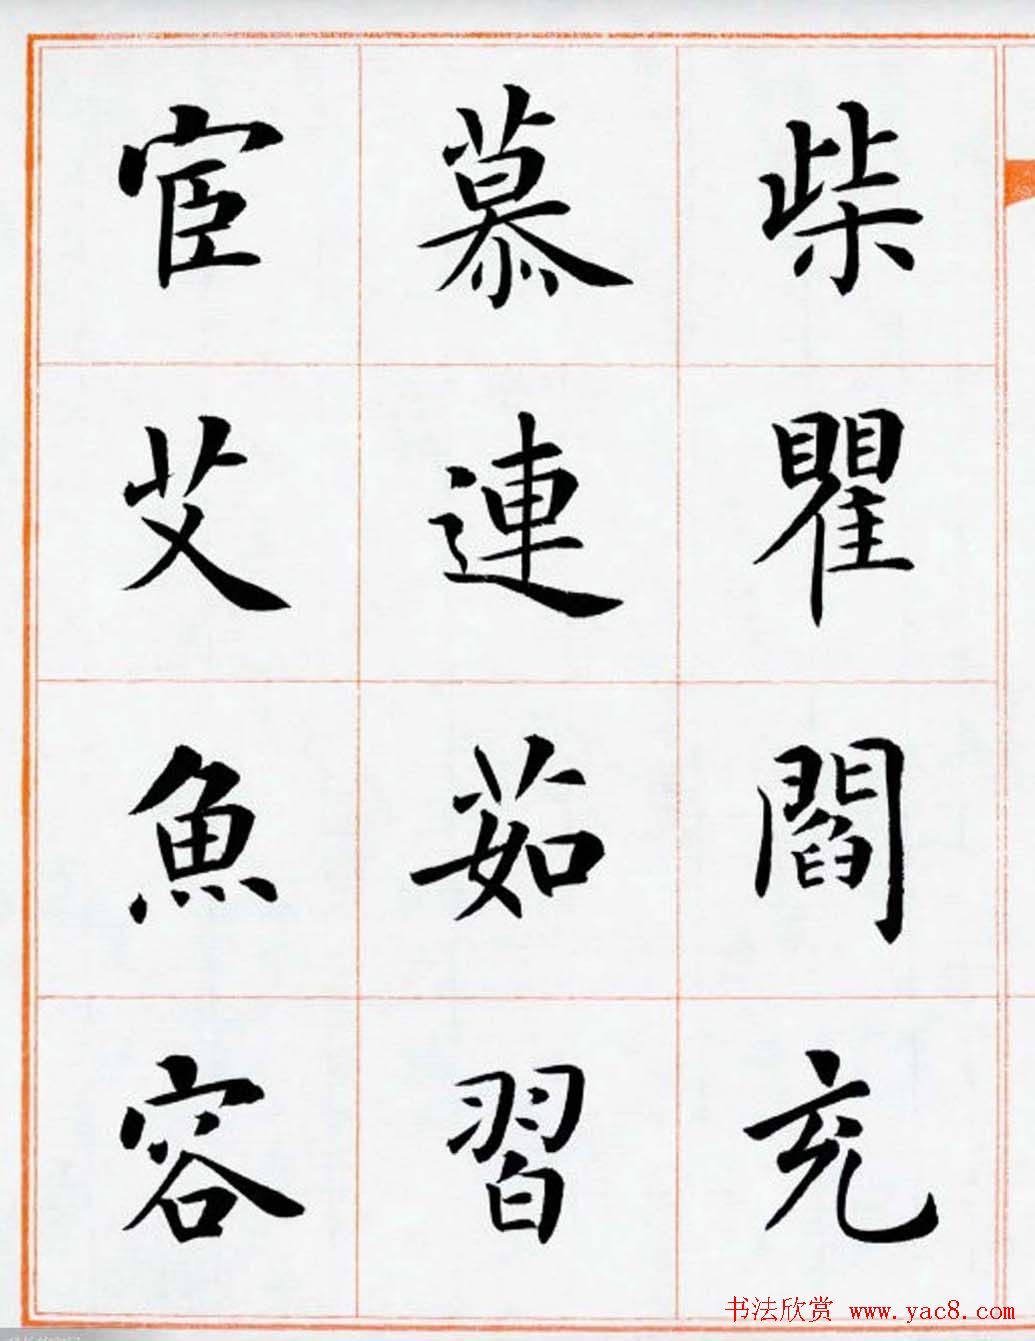 柴瞿閻充
慕連茹習
宦艾魚容
书法欣赏 www.yac8.com